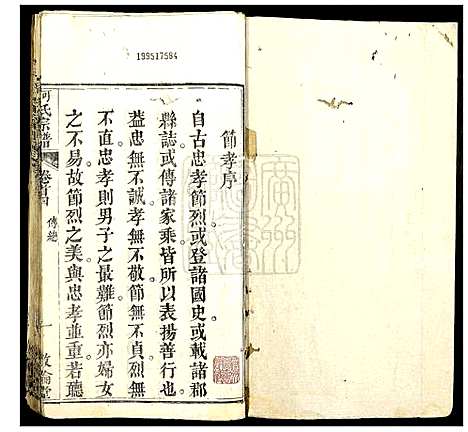 199517584
節孝序
自古忠孝節烈或登諸國史或載諸郡
縣誌或傳諸家乘皆所以表揚善行也
益忠無不誠孝無不敬節無不貞烈無
不直忠孝則男子之最難節烈亦婦女
之不易故節烈之美與忠孝並重若聽
何氏宗譜
卷首
傳總